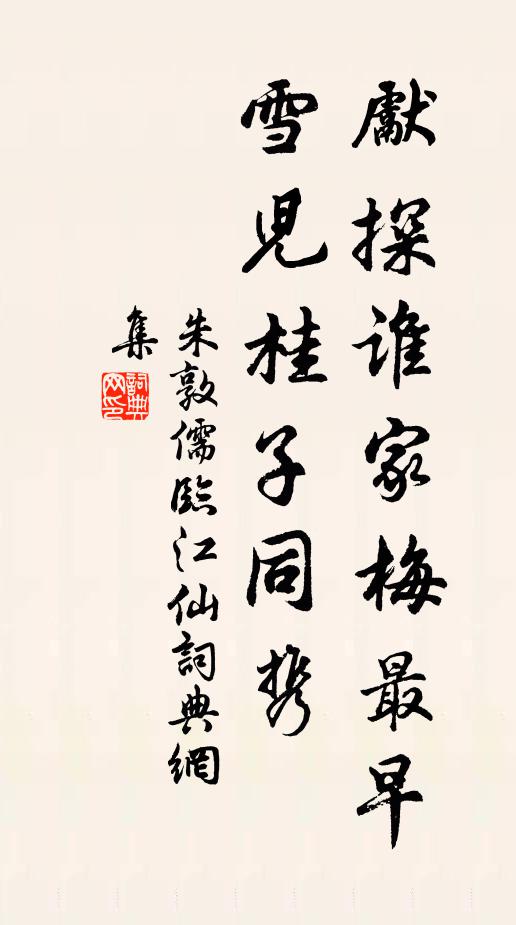 獻探誰家梅最早
雪兒桂子同携
朱敦儒臨江仙詞典網
集
詞典
网印